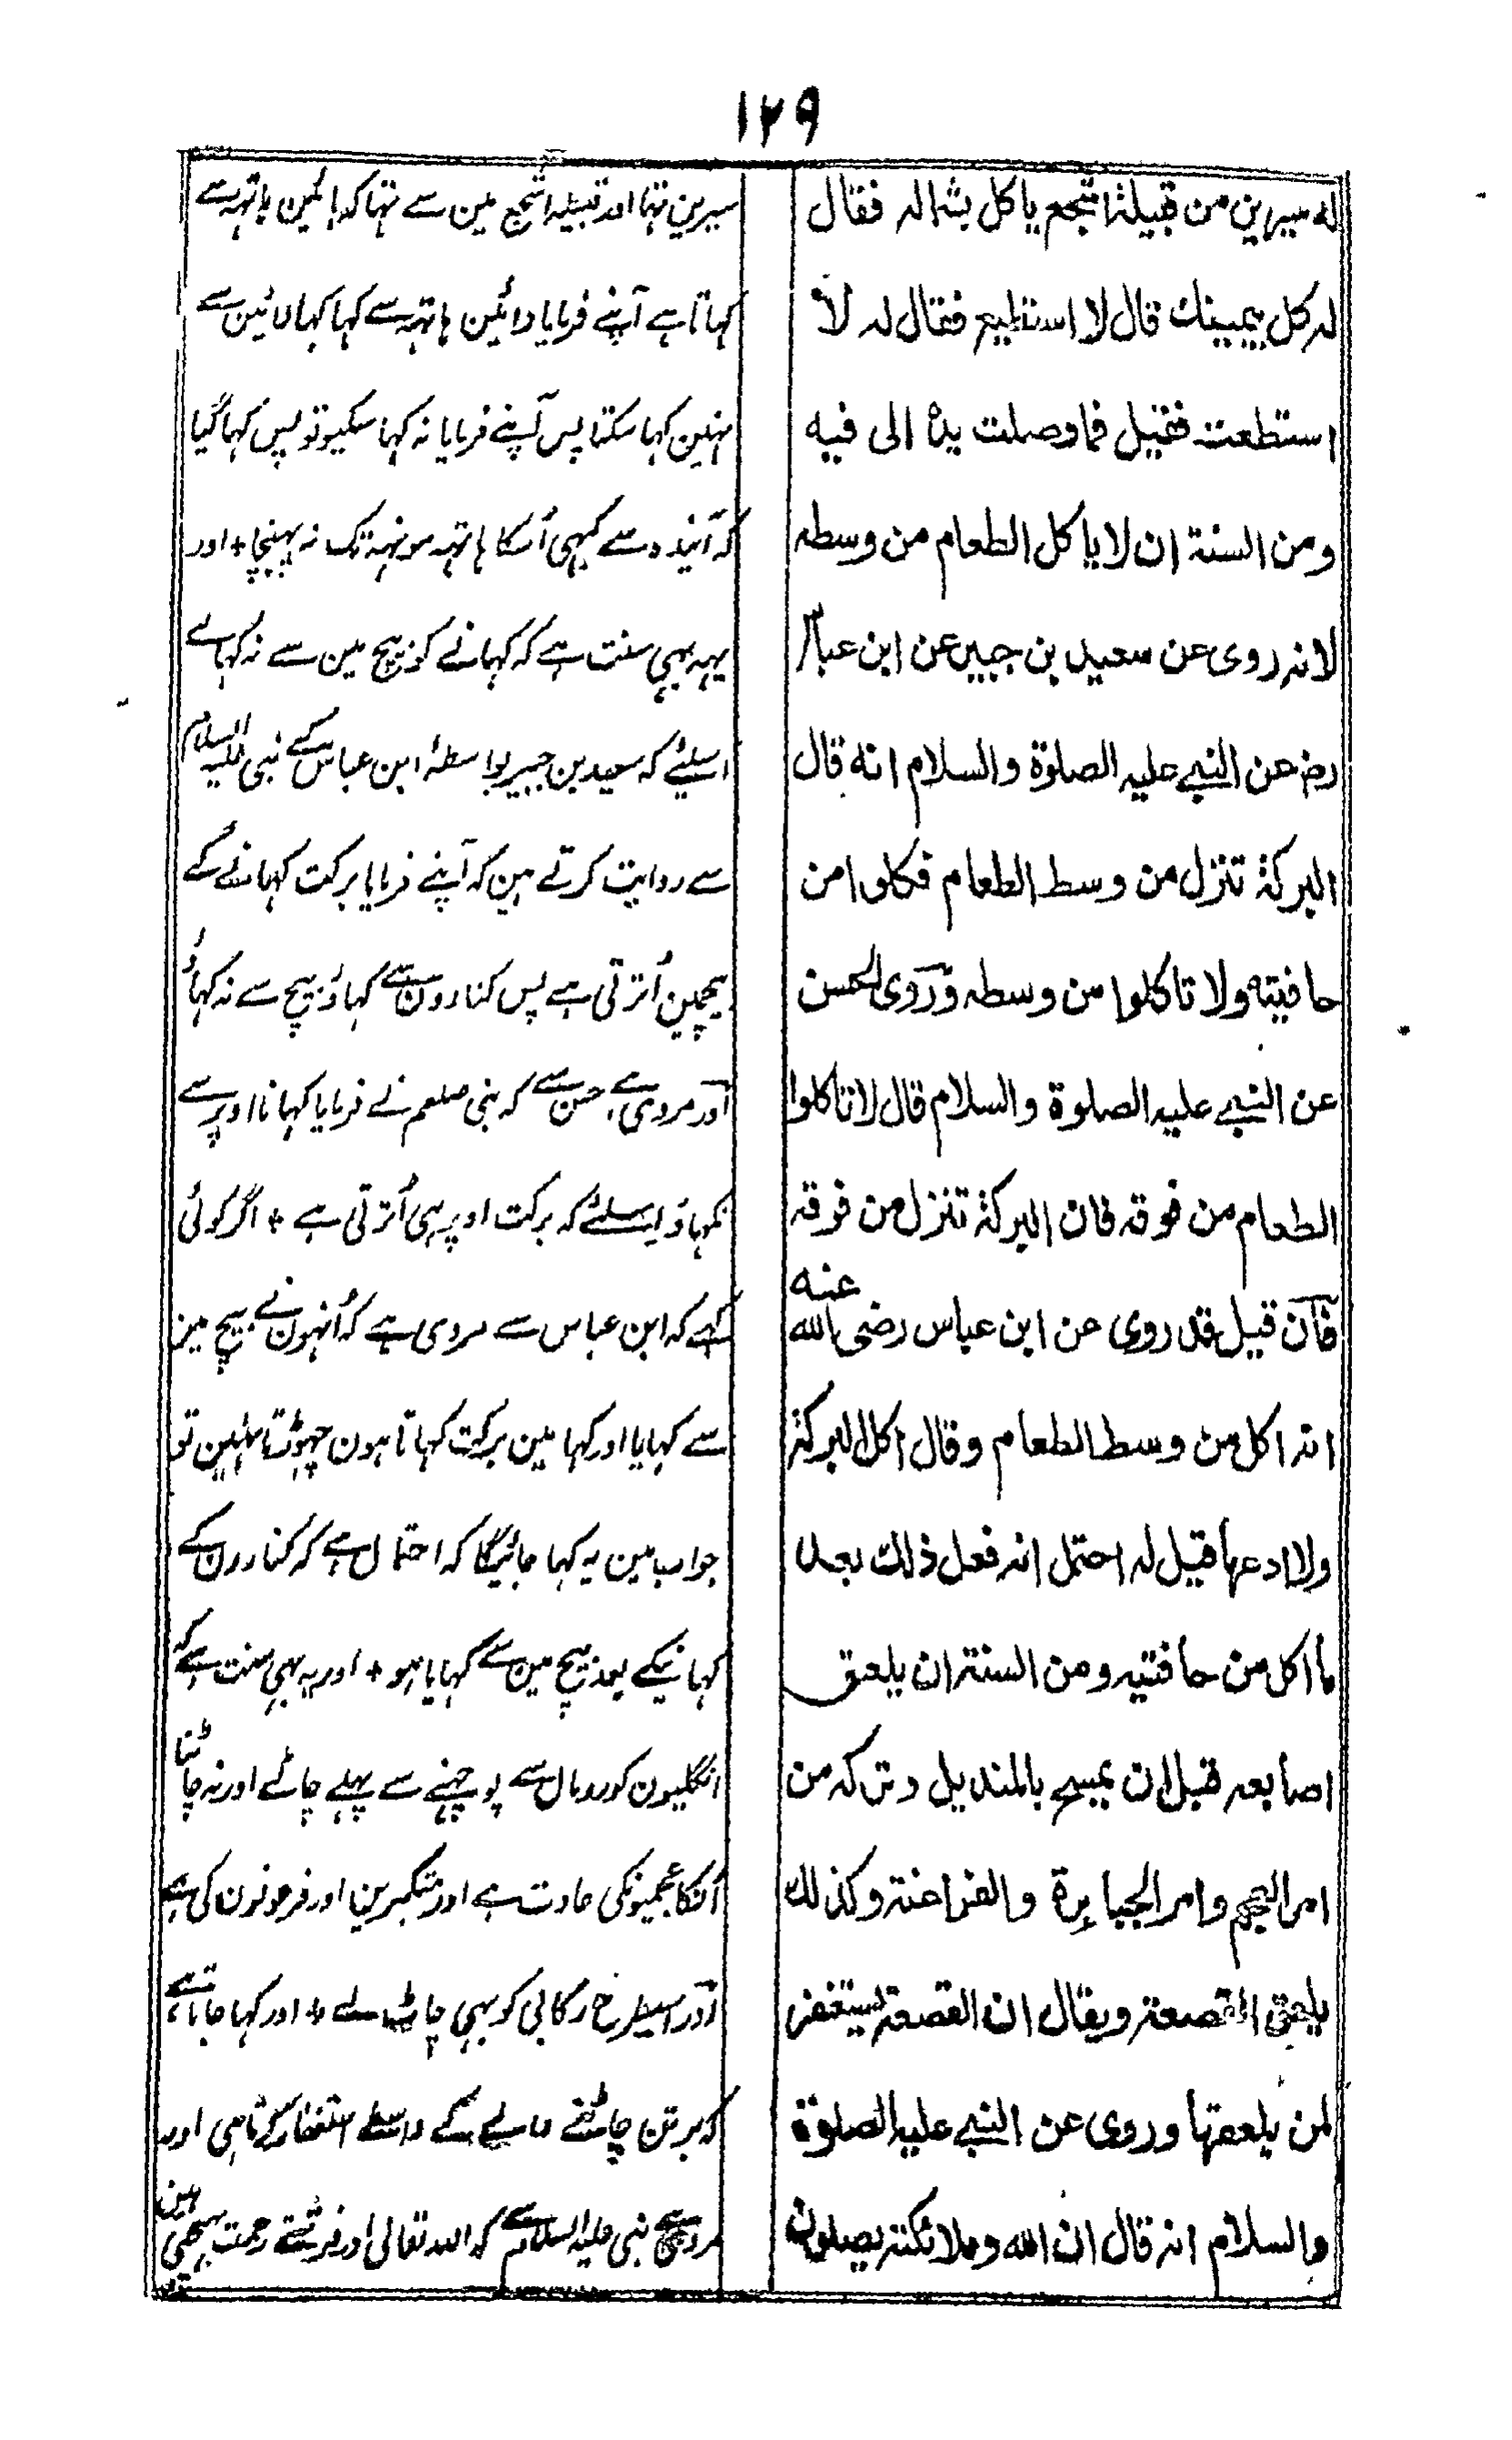 ۱۲۹
له سیرین من قبیلة اشجع یاکل بشماله فقال
له کل بیمینك قال لا استطیع فقال له لا
استطعت فقیل فما وصلت یدہ الی فیه
ومن السنة ان لا یاکل الطعام من وسطه
لانه روی عن سعید بن جبیر عن ابن عباس
رض عن النبے علیه الصلوة والسلام انه قال
البرکة تنزل من وسط الطعام فکلوا من
حافیته ولا تاکلوا من وسطه وروی الحسن
عن النبے علیه الصلوة والسلام قال لا تاکلوا
الطعام من فوقه فان البرکة تنزل من فوقه
فان قیل قد روی عن ابن عباس رضی الله عنه
انه اکل من وسط الطعام وقال اکل البرکة
ولا ادعها قیل له احتمل انه فعل ذلك بعد
ما اکل من حافتیه ومن السنة ان یلعق
اصابعه قبل ان یمسح بالمندیل وترکه من
امر العجم وامر الجبابرة والفراعنة وکذلك
یلعق القصعة ویقال ان القصعة لیستغفر
لمن یلعقها وروی عن النبے علیه الصلوة
والسلام انه قال ان الله وملائکته یصلون
سیرین تها اور قبیلہ اشجع مین سے تها کہ بائین ہاتہہ سے
کہاتا ہے آپنے فرمایا دائین ہاتہہ سے کہا کہا دائین سے
نہین کہا سکتا پس آپنے فرمایا نہ کہا سکیو تو پس کہا گیا
کہ آیندہ سے کبہی اُسکا ہاتہہ مونہہ تک نہ پہنچا + اور
یہہ بہی سنت ہے کہ کہانے کو بیچ مین سے نہ کہائے
اسلیئے کہ سعید بن جبیر بواسطۂ ابن عباس کے نبی علیہ السلام
سے روایت کرتے ہین کہ آپنے فرمایا برکت کہانے کے
بیچمین اُترتی ہے پس کنارون سے کہاؤ بیچ سے نہ کہاؤ
اور مروی ہے حسن سے کہ نبی صلعم نے فرمایا کہانا اوپر سے
نکہاؤ اسلئے کہ برکت اوپر ہی اُترتی ہے + اگر کوئی
کہے کہ ابن عباس سے مروی ہے کہ اُنہون نے بیچ مین
سے کہایا اور کہا مین برکت کہاتا ہون چہوڑتا نہین تو
جواب مین یہ کہا جائیگا کہ احتمال ہے کہ کنارون کے
کہانیکے بعد بیچ مین سے کہایا ہو + اور یہ بہی سنت ہے کہ
انگلیون کو رومال سے پوچہنے سے پہلے چاٹے اور نہ چاٹنا
اُنکا عجمیونکی عادت ہے اور متکبرین اور فرعونون کی ہے
اور اسیطرح رکابی کو بہی چاٹ لے + اور کہا جاتا ہے
کہ برتن چاٹنے والے کے واسطے استغفار کرتا ہی اور
مروی ہے نبی علیہ السلام سے کہ اللہ تعالی اور فرشتے رحمت بہیجتے ہین